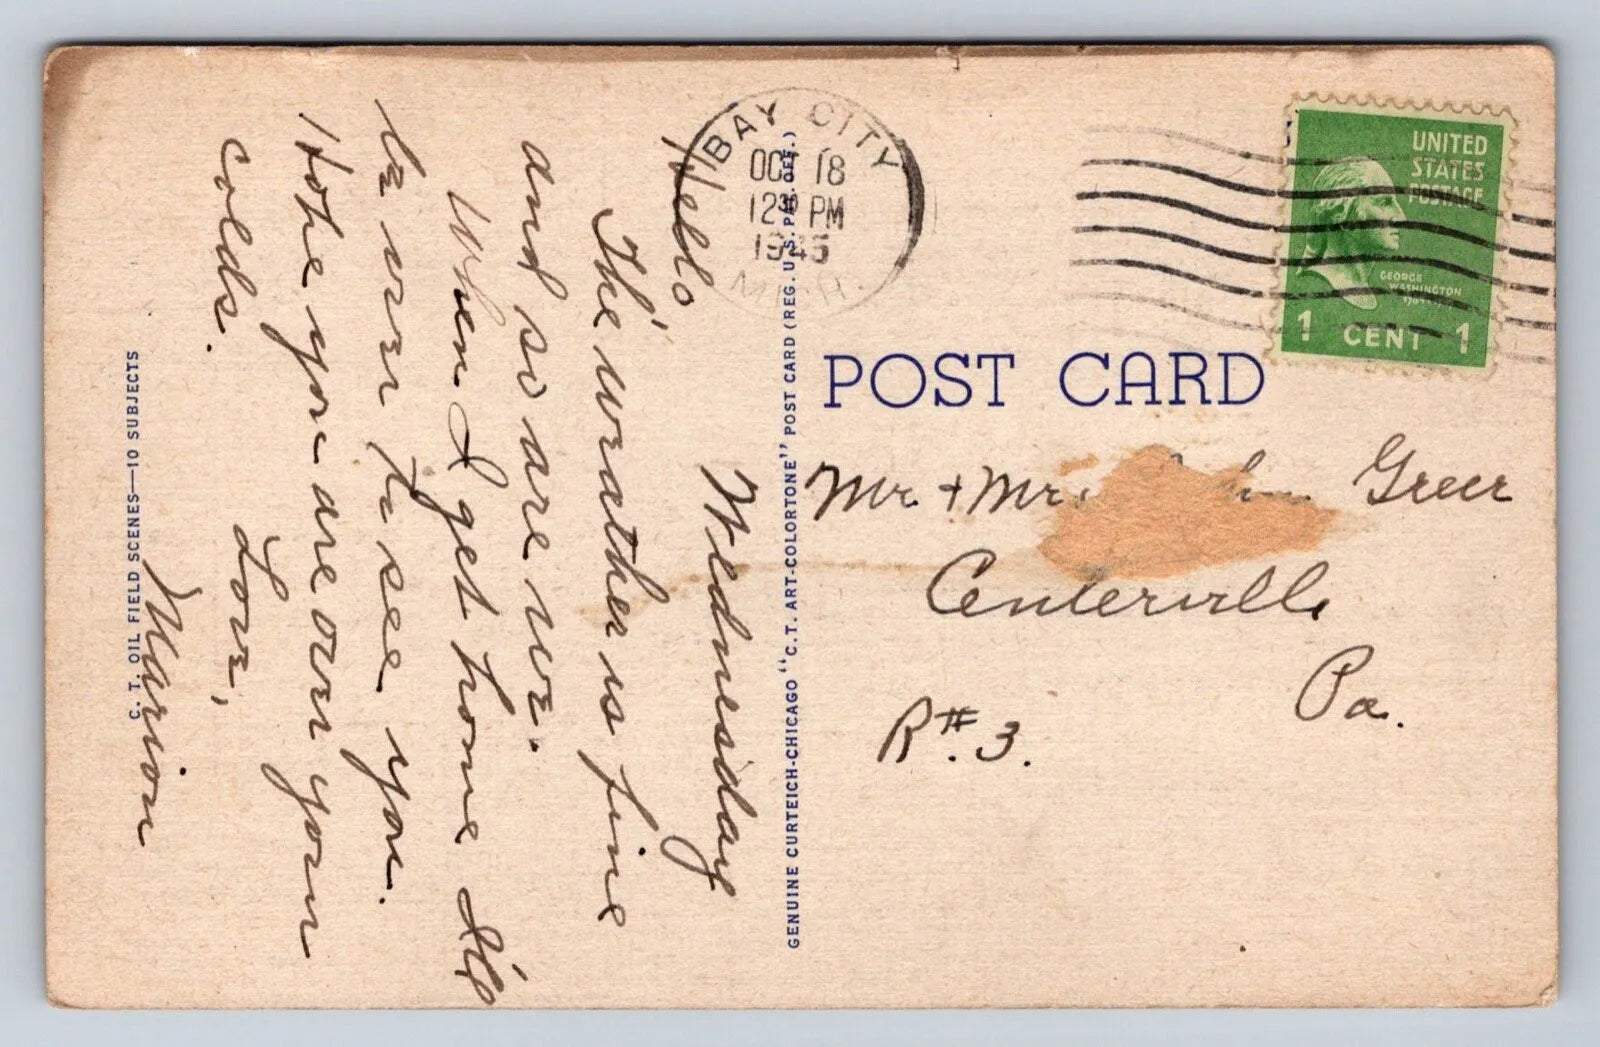 Wednesday
Hello
The weather is fine
and so are we.
When I get home I'll
be over to see you.
Hope you are over your
colds.
Love,
Marion
C. T. OIL FIELD SCENES—10 SUBJECTS
GENUINE CURTEICH-CHICAGO "C.T. ART-COLORTONE" POST CARD (REG. U.S. PAT. OFF.)
BAY CITY
OCT 18
12 30 PM
1945
MICH.
UNITED
STATES
POSTAGE
GEORGE
WASHINGTON
1 CENT 1
POST CARD
Mr. + Mrs. Greer
Centerville
Pa.
R#. 3.